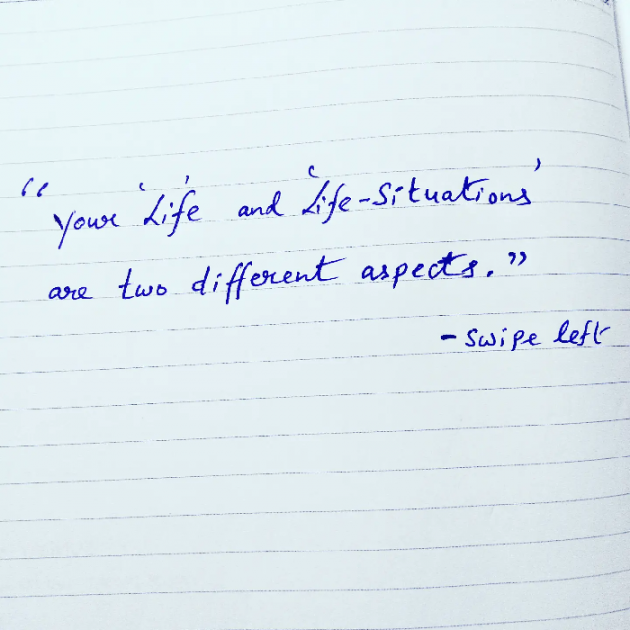 “Your ‘Life’ and ‘Life-Situations’
are two different aspects.”
- Swipe left